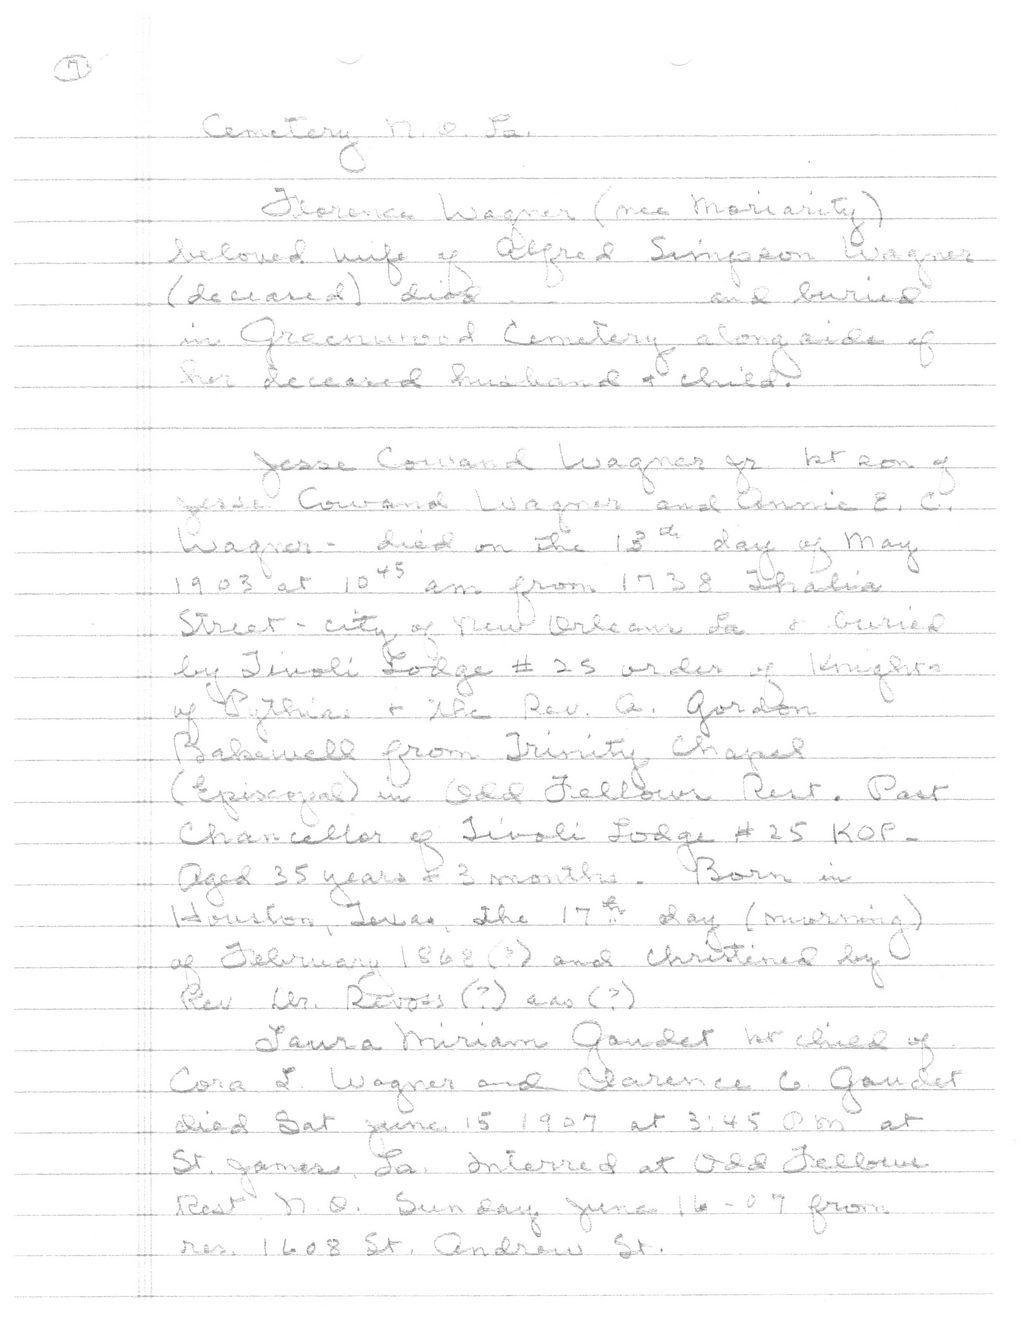 7
Cemetery N. O. La.
Florence Wagner (nee Moriarity)
beloved wife of Alfred Simpson Wagner
(deceased) died and buried
in Greenwood Cemetery along side of
her deceased husband & child.
Jesse Cowand Wagner Jr 1st son of
Jesse Cowand Wagner and Annie E. C.
Wagner - died on the 13th day of May
1903 at 10 45 am from 1738 Thalia
Street - city of New Orleans La & buried
by Tivoli Lodge # 25 order of Knights
of Pythias & the Rev. A. Gordon
Bakewell from Trinity Chapel
(Episcopal) in Odd Fellows Rest. Past
Chancellor of Tivoli Lodge # 25 KOP-
Aged 35 years & 3 months. Born in
Houston, Texas, the 17th day (morning)
of February 1868 (?) and christened by
Rev Dr. (?) (?)
Laura Miriam Gaudet 1st child of
Cora L. Wagner and Clarence C. Gaudet
died Sat June 15 1907 at 3:45 PM at
St. James, La. Interred at Odd Fellows
Rest N. O. Sunday June 16-07 from
res. 1608 St. Andrew St.